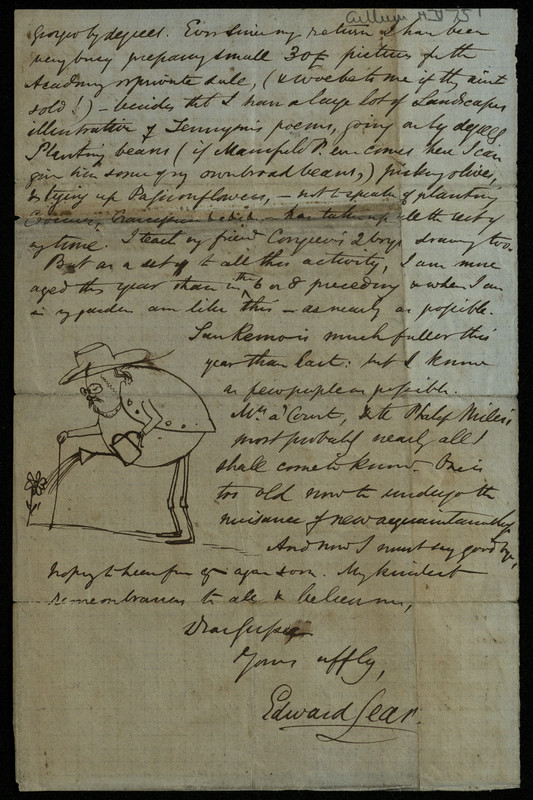 by degrees. Ever since my return I have been
very busy preparing small 30£ pictures for the
Academy or private sale, (& woe be to me if they aint
sold!) – besides that I have a large lot of Landscapes
illustrative of Tennyson's poems, going on by degrees.
Planting beans (if comes here I can
give him some of my own broad beans,) picking olives,
& tying up Passionflowers, – not to speak of planting
has taken up all the rest of
my time. I teach my friend Congreve's 2 boys drawing too.
But as a set off to all this activity, I am more
aged this year than in the 6 or 8 preceding & when I am
in my garden am like this – as nearly as possible.
San Remo is much fuller this
year than last: but I know
as few people as possible.
Mrs. a'Court, & the Philip Miles's
most probably nearly all I
shall come to know. One is
too old now to undergo the
nuisance of new
And now I must say goodbye,
hoping to hear from you again soon. My kindest
remembrances to all & believe me,
Dear
Yours affly,
Edward Lear.